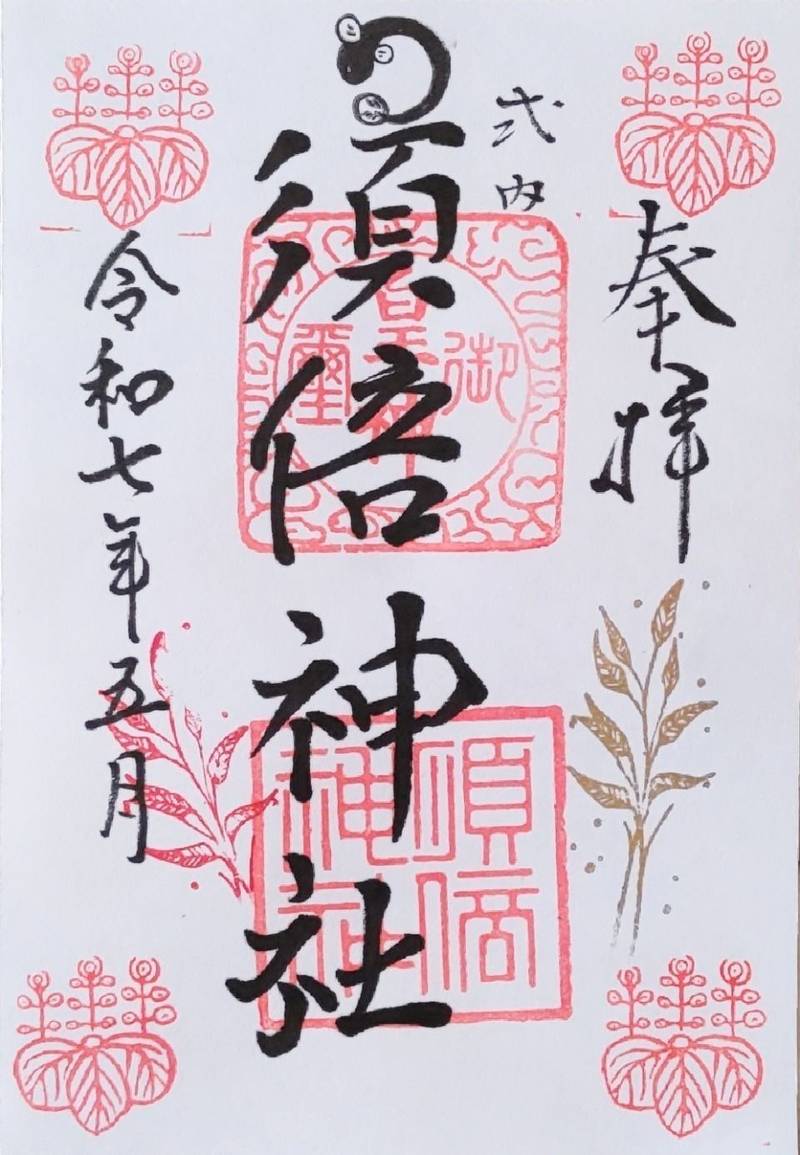 奉拝
式内
須倍神社
令和七年五月
皇神
御
璽
須倍
神社